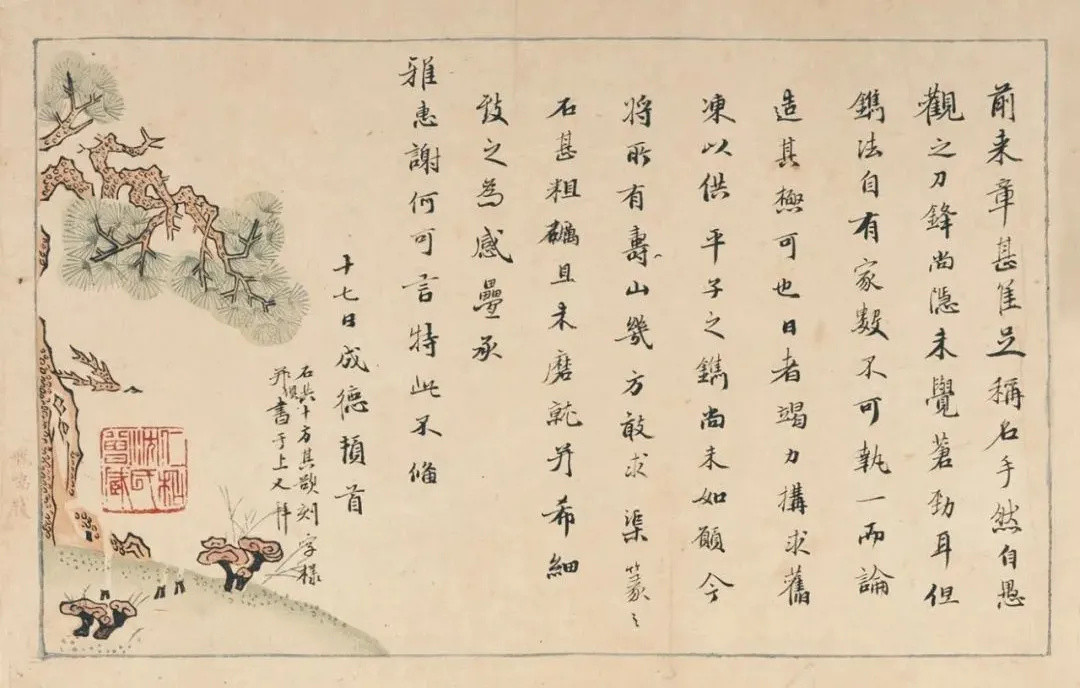 前来章甚隹足稱名手然自愚
觀之刀鋒尚隱未覺蒼勁耳但
鐫法自有家數不可執一而論
造其極可也日者竭力搆求舊
凍以供平子之鐫尚未如願今
將所有壽山幾方敢求渠篆之
石甚粗礪且未磨就并希細
致之為感疊承
雅惠謝何可言特此不備
十七日成德頓首
石共十方其欲刻字樣
并書于上又拜
仁和
沈氏
曾藏